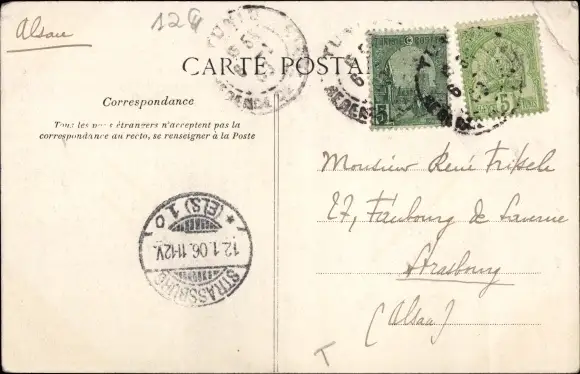 Alsace
CARTE POSTALE
Correspondance
Tous les pays étrangers n'acceptent pas la
correspondance au recto, se renseigner à la Poste
TUNISIE
5
5
Monsieur René
27, Faubourg de Saverne
Strasbourg
(Alsace)
STRASSBURG
12.1.06.11-12V.
* (ELS) 1 o
T